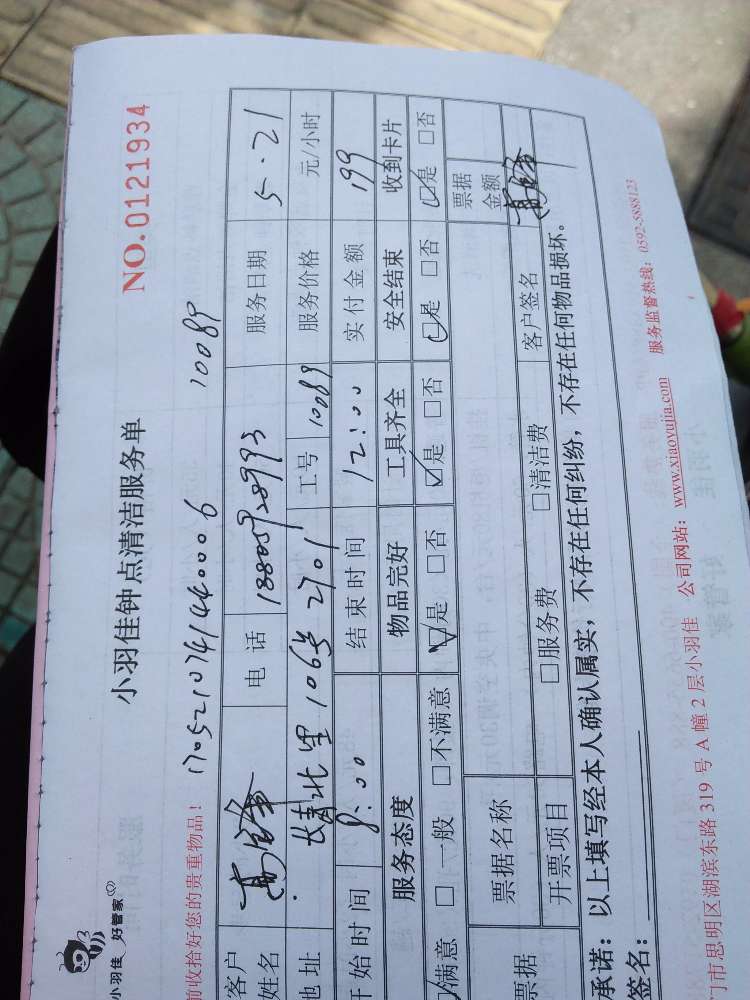 小羽佳 好管家
小羽佳钟点清洁服务单
NO.0121934
前收拾好您的贵重物品! 1705210741440006 10089
客户姓名 电话 18805928993 服务日期 5.21
地址 北里106号2701 工号 10089 服务价格 元/小时
开始时间 8:00 结束时间 12:00 实付金额 199
服务态度 物品完好 工具齐全 安全结束 收到卡片
☑满意 □一般 □不满意 ☑是 □否 ☑是 □否 ☑是 □否 ☑是 □否
票据 票据名称 票据金额
开票项目 □服务费 □清洁费 客户签名
承诺:以上填写经本人确认属实,不存在任何纠纷,不存在任何物品损坏。
签名:
门市思明区湖滨东路 319 号 A 幢 2 层小羽佳 公司网站:www.xiaoyujia.com 服务监督热线:0592-5888123